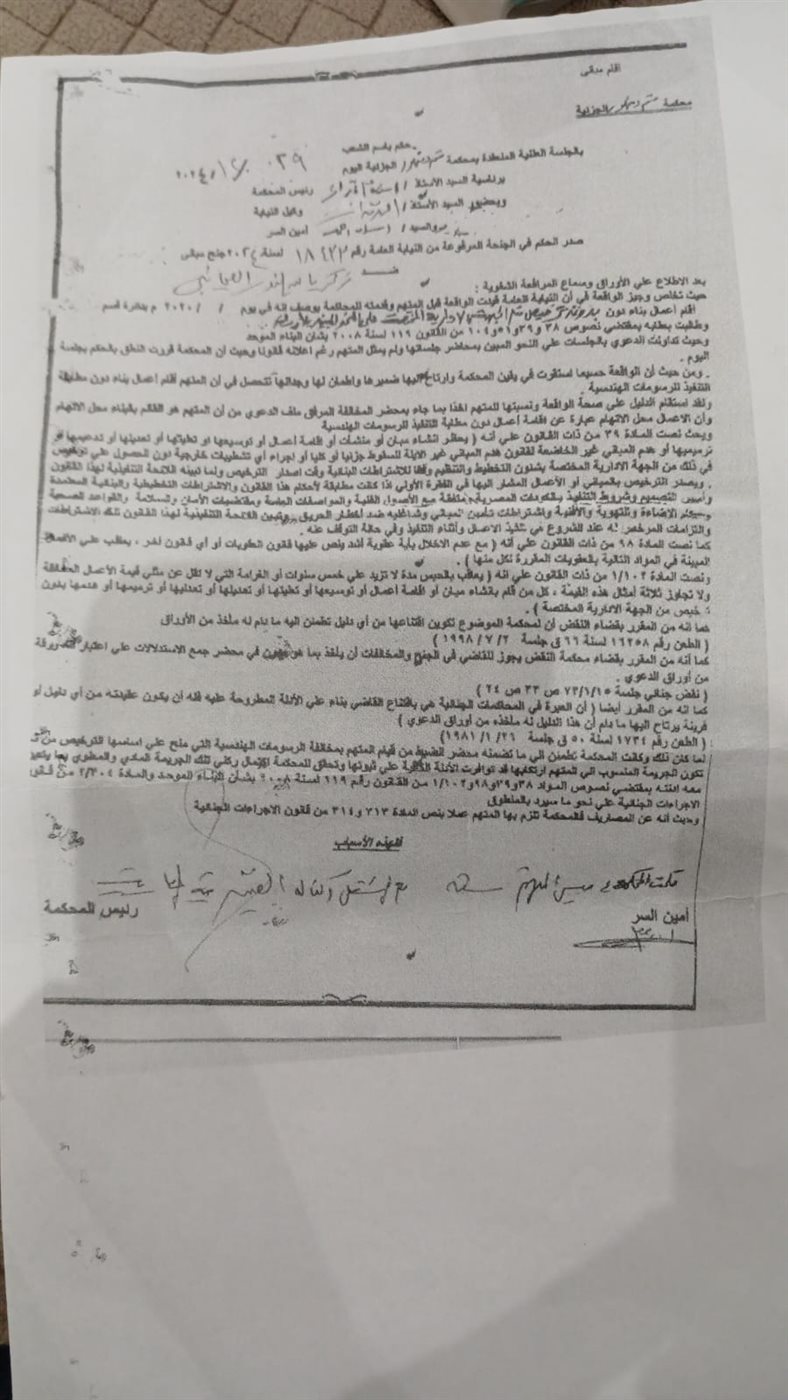 اقلام مباني
محكمة الجزئية
حكم باسم الشعب
بالجلسة العلنية المنعقدة بمحكمة الجزئية اليوم ٢٠٢٤
برئاسية السيد الأستاذ / رئيس المحكمة
وبحضور السيد الأستاذ / وكيل النيابة
والسيد / أمين السر
صدر الحكم في الجنحة المرفوعة من النيابة العامة رقم ١٨٤٢٢ لسنة ٢٠٢٤ جنح مباني
ضد
بعد الاطلاع علي الأوراق وسماع المرافعة الشفوية :
حيث تخلص وجيز الواقعة في أن النيابة العامة قيدت الواقعة قبل المتهم وقدمته للمحاكمة بوصف انه في يوم / / ٢٠٢٠ م بدائرة قسم
اقام أعمال بناء دون
وطالبت بطلبه بمقتضي نصوص ٣٨ و٣٩ و٥١ و١٠٤ من القانون ١١٩ لسنة ٢٠٠٨ بشان البناء الموحد
وحيث تداولت الدعوي بالجلسات علي النحو المبين بمحاضر جلساتها ولم يمثل المتهم رغم اعلانه قانونا وحيث أن المحكمة قررت النطق بالحكم بجلسة
اليوم .
. ومن حيث أن الواقعة حسبما استقرت في يقين المحكمة وارتاح اليها ضميرها واطمان لها وجدانها تتحصل في أن المتهم أقام أعمال بناء دون مطابقة
التنفيذ للرسومات الهندسية .
ولقد استقام الدليل علي صحة الواقعة ونسبتها للمتهم اخذا بما جاء بمحضر المخالفة المرفق ملف الدعوي من أن المتهم هو القائم بالبناء محل الاتهام
وأن الاعمال محل الاتهام عبارة عن اقامة أعمال دون مطابة التنفيذ للرسومات الهندسية
وبحث نصت المادة ٣٩ من ذات القانون علي أنه ( يحظر انشاء مبان أو منشأت أو اقامة أعمال أو توسيعها او تعليتها أو تعديلها أو تدعيمها أو
ترميمها أو هدم المباني غير الخاضعة لقانون هدم المباني غير الايلة للسقوط جزئيا أو كليا أو اجراء أي تشطيبات خارجية دون الحصول علي ترخيص
في ذلك من الجهة الادارية المختصة بشئون التخطيط والتنظيم وفقا للاشتراطات البنائية وقت اصدار الترخيص ولما تبينه اللائحة التنفيذية لهذا القانون
. ويصدر الترخيص بالمباني أو الأعمال المشار اليها في الفقرة الأولي اذا كانت مطابقة لأحكام هذا القانون والاشتراطات التخطيطية والبنائية المعتمدة
وأسس التصميم وشروط التنفيذ بالكودات المصرية متفقة مع الأصول الفنية والمواصفات العامة ومقتضيات الأمان والسلامة والقواعد الصحية
وأحكام الاضاءة والتهوية والأفنية واشتراطات تأمين المباني وشاغليه ضد أخطار الحريق وتبين اللائحة التنفيذية لهذا القانون تلك الاشتراطات
والتزامات المرخص له عند الشروع في تنفيذ الاعمال وأثناء التنفيذ وفي حالة التوقف عنه .
كما نصت المادة ٩٨ من ذات القانون علي أنه ( مع عدم الاخلال بأية عقوبة أشد ينص عليها قانون العقوبات أو أي قانون أخر ، يعاقب علي الأفعال
المبينة في المواد التالية بالعقوبات المقررة لكل منها ) .
ونصت المادة ١/١٠٢ من ذات القانون علي انه ( يعاقب بالحبس مدة لا تزيد علي خمس سنوات أو الغرامة التي لا تقل عن مثلي قيمة الأعمال المخالفة
ولا تجاوز ثلاثة أمثال هذه القيمة ، كل من قام بانشاء مبان أو اقامة أعمال أو توسيعها أو تعليتها أو تعديلها أو تدعيمها أو ترميمها أو هدمها بدون
ترخيص من الجهة الادارية المختصة ) .
كما أنه من المقرر بقضاء النقض أن لمحكمة الموضوع تكوين اقتناعها من أي دليل تطمئن اليه ما دام له مأخذ من الأوراق
( الطعن رقم ١٦٢٥٨ لسنة ٦٦ ق جلسة ٢/ ٧ / ١٩٩٨ )
كما أنه من المقرر بقضاء محكمة النقض يجوز للقاضي في الجنح والمخالفات أن يأخذ بما هو مدون في محضر جمع الاستدلالات علي اعتبار انه ورقة
من أوراق الدعوي .
( نقض جنائي جلسة ٧٣/١/١٥ س ٣٣ ص ٢٤ )
كما انه من المقرر أيضا ( أن العبرة في المحاكمات الجنائية هي باقتناع القاضي بناء علي الأدلة المطروحة عليه فله أن يكون عقيدته من أي دليل أو
قرينة يرتاح اليها ما دام أن هذا الدليل له مأخذه من أوراق الدعوي )
( الطعن رقم ١٧٣٤ لسنة ٥٠ ق جلسة ٢٦ /١ /١٩٨١ )
لما كان ذلك وكانت المحكمة تطمئن الي ما تضمنه محضر الضبط من قيام المتهم بمخالفة الرسومات الهندسية التي منح علي اساسها الترخيص من
تكون الجريمة المنسوب الي المتهم ارتكابها قد توافرت الأدلة الكافية علي ثبوتها وتحقق للمحكمة اكتمال ركني تلك الجريمة المادي والمعنوي بما يتعين
معه ادانته بمقتضي نصوص المواد ٣٨ و٣٩ و٩٨ و١/١٠٢ من القانون رقم ١١٩ لسنة ٢٠٠٨ بشأن البناء الموحد والمادة ٢/٣٠٤ من قانون
الاجراءات الجنائية علي نحو ما سيرد بالمنطوق
وحيث أنه عن المصاريف فالمحكمة تلزم بها المتهم عملا بنص المادة ٣١٣ و٣١٤ من قانون الاجراءات الجنائية
فلهذه الأسباب
حكمت المحكمة بحبس المتهم سنة مع الشغل وكفالة
أمين السر رئيس المحكمة